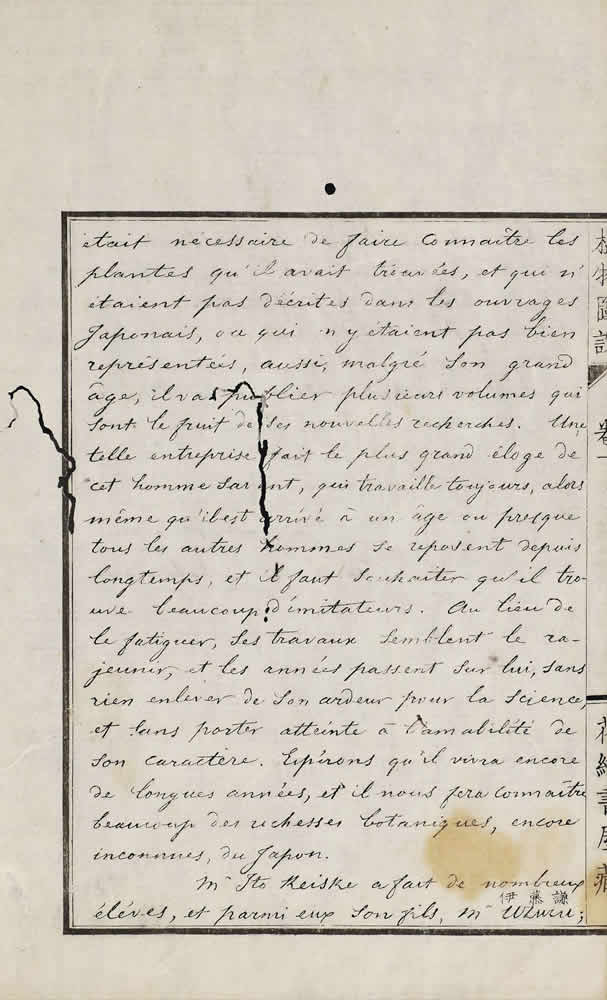 était nécessaire de faire connaître les
plantes qu'il avait trouvées, et qui n'
étaient pas décrites dans les ouvrages
Japonais, ou qui n'y étaient pas bien
représentées, aussi, malgré son grand
âge, il va publier plusieurs volumes qui
sont le fruit de ses nouvelles recherches. Une
telle entreprise fait le plus grand éloge de
cet homme savant, qui travaille toujours, alors
même qu'il est arrivé à un âge ou presque
tous les autres hommes se reposent depuis
longtemps, et il faut souhaiter qu'il tro-
uve beaucoup d'imitateurs. Au lieu de
le fatiguer, ses travaux semblent le ra-
jeunir, et les années passent sur lui, sans
rien enlever de son ardeur pour la science,
et sans porter atteinte à l'amabilité de
son caractère. Espérons qu'il vivra encore
de longues années, et il nous fera connaître
beaucoup des richesses botaniques, encore
inconnues, du Japon.
Mr Ito Keiske a fait de nombreux
伊藤謙
élèves, et parmi eux son fils, Mr
卷一
花繞書屋藏